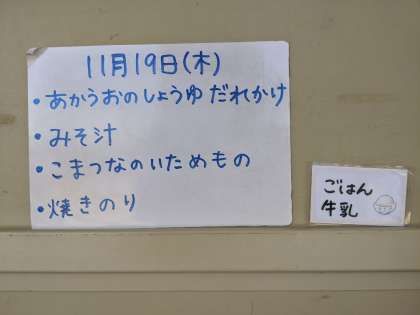 11月19日(木)
・あかうおのしょうゆだれかけ
・みそ汁
・こまつなのいためもの
・焼きのり
ごはん
牛乳